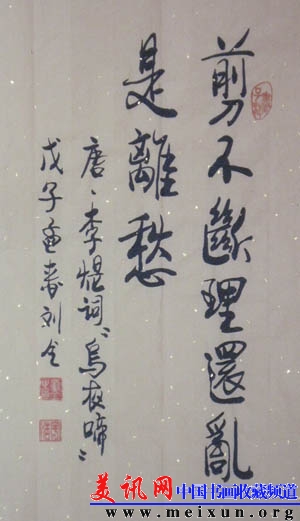 剪不斷理還亂
是離愁
唐、李煜詞“烏夜啼”
戊子孟春刘
美讯网 中国书画收藏频道
www.meixun.org